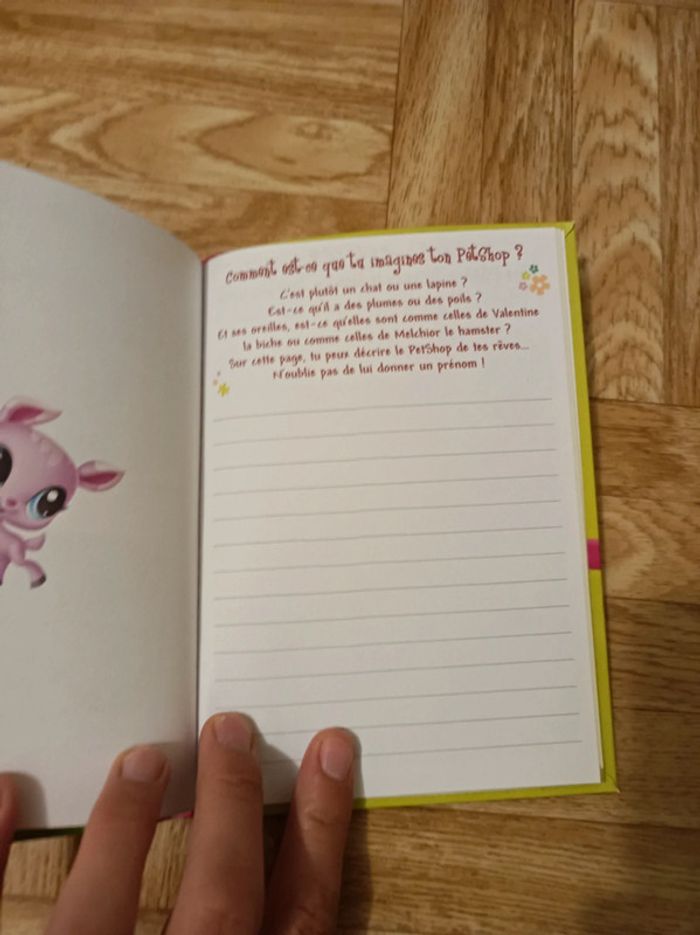 Comment est-ce que tu imagines ton PetShop ?
C'est plutôt un chat ou une lapine ?
Est-ce qu'il a des plumes ou des poils ?
Et ses oreilles, est-ce qu'elles sont comme celles de Valentine
la biche ou comme celles de Melchior le hamster ?
Sur cette page, tu peux décrire le PetShop de tes rêves...
N'oublie pas de lui donner un prénom !